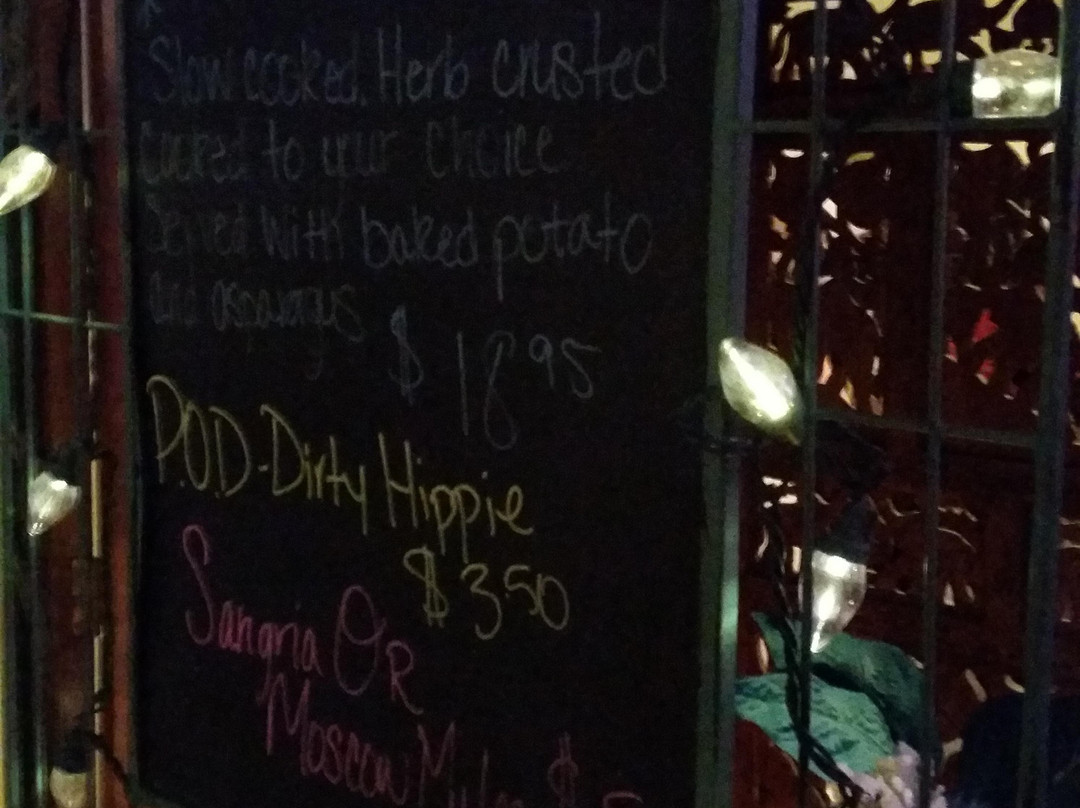 Slow cooked Herb crusted
Cooked to your choice
Served with baked potato
and asparagus
$ 18 95
P.O.D-Dirty Hippie
$ 3.50
Sangria OR
Moscow Mules $